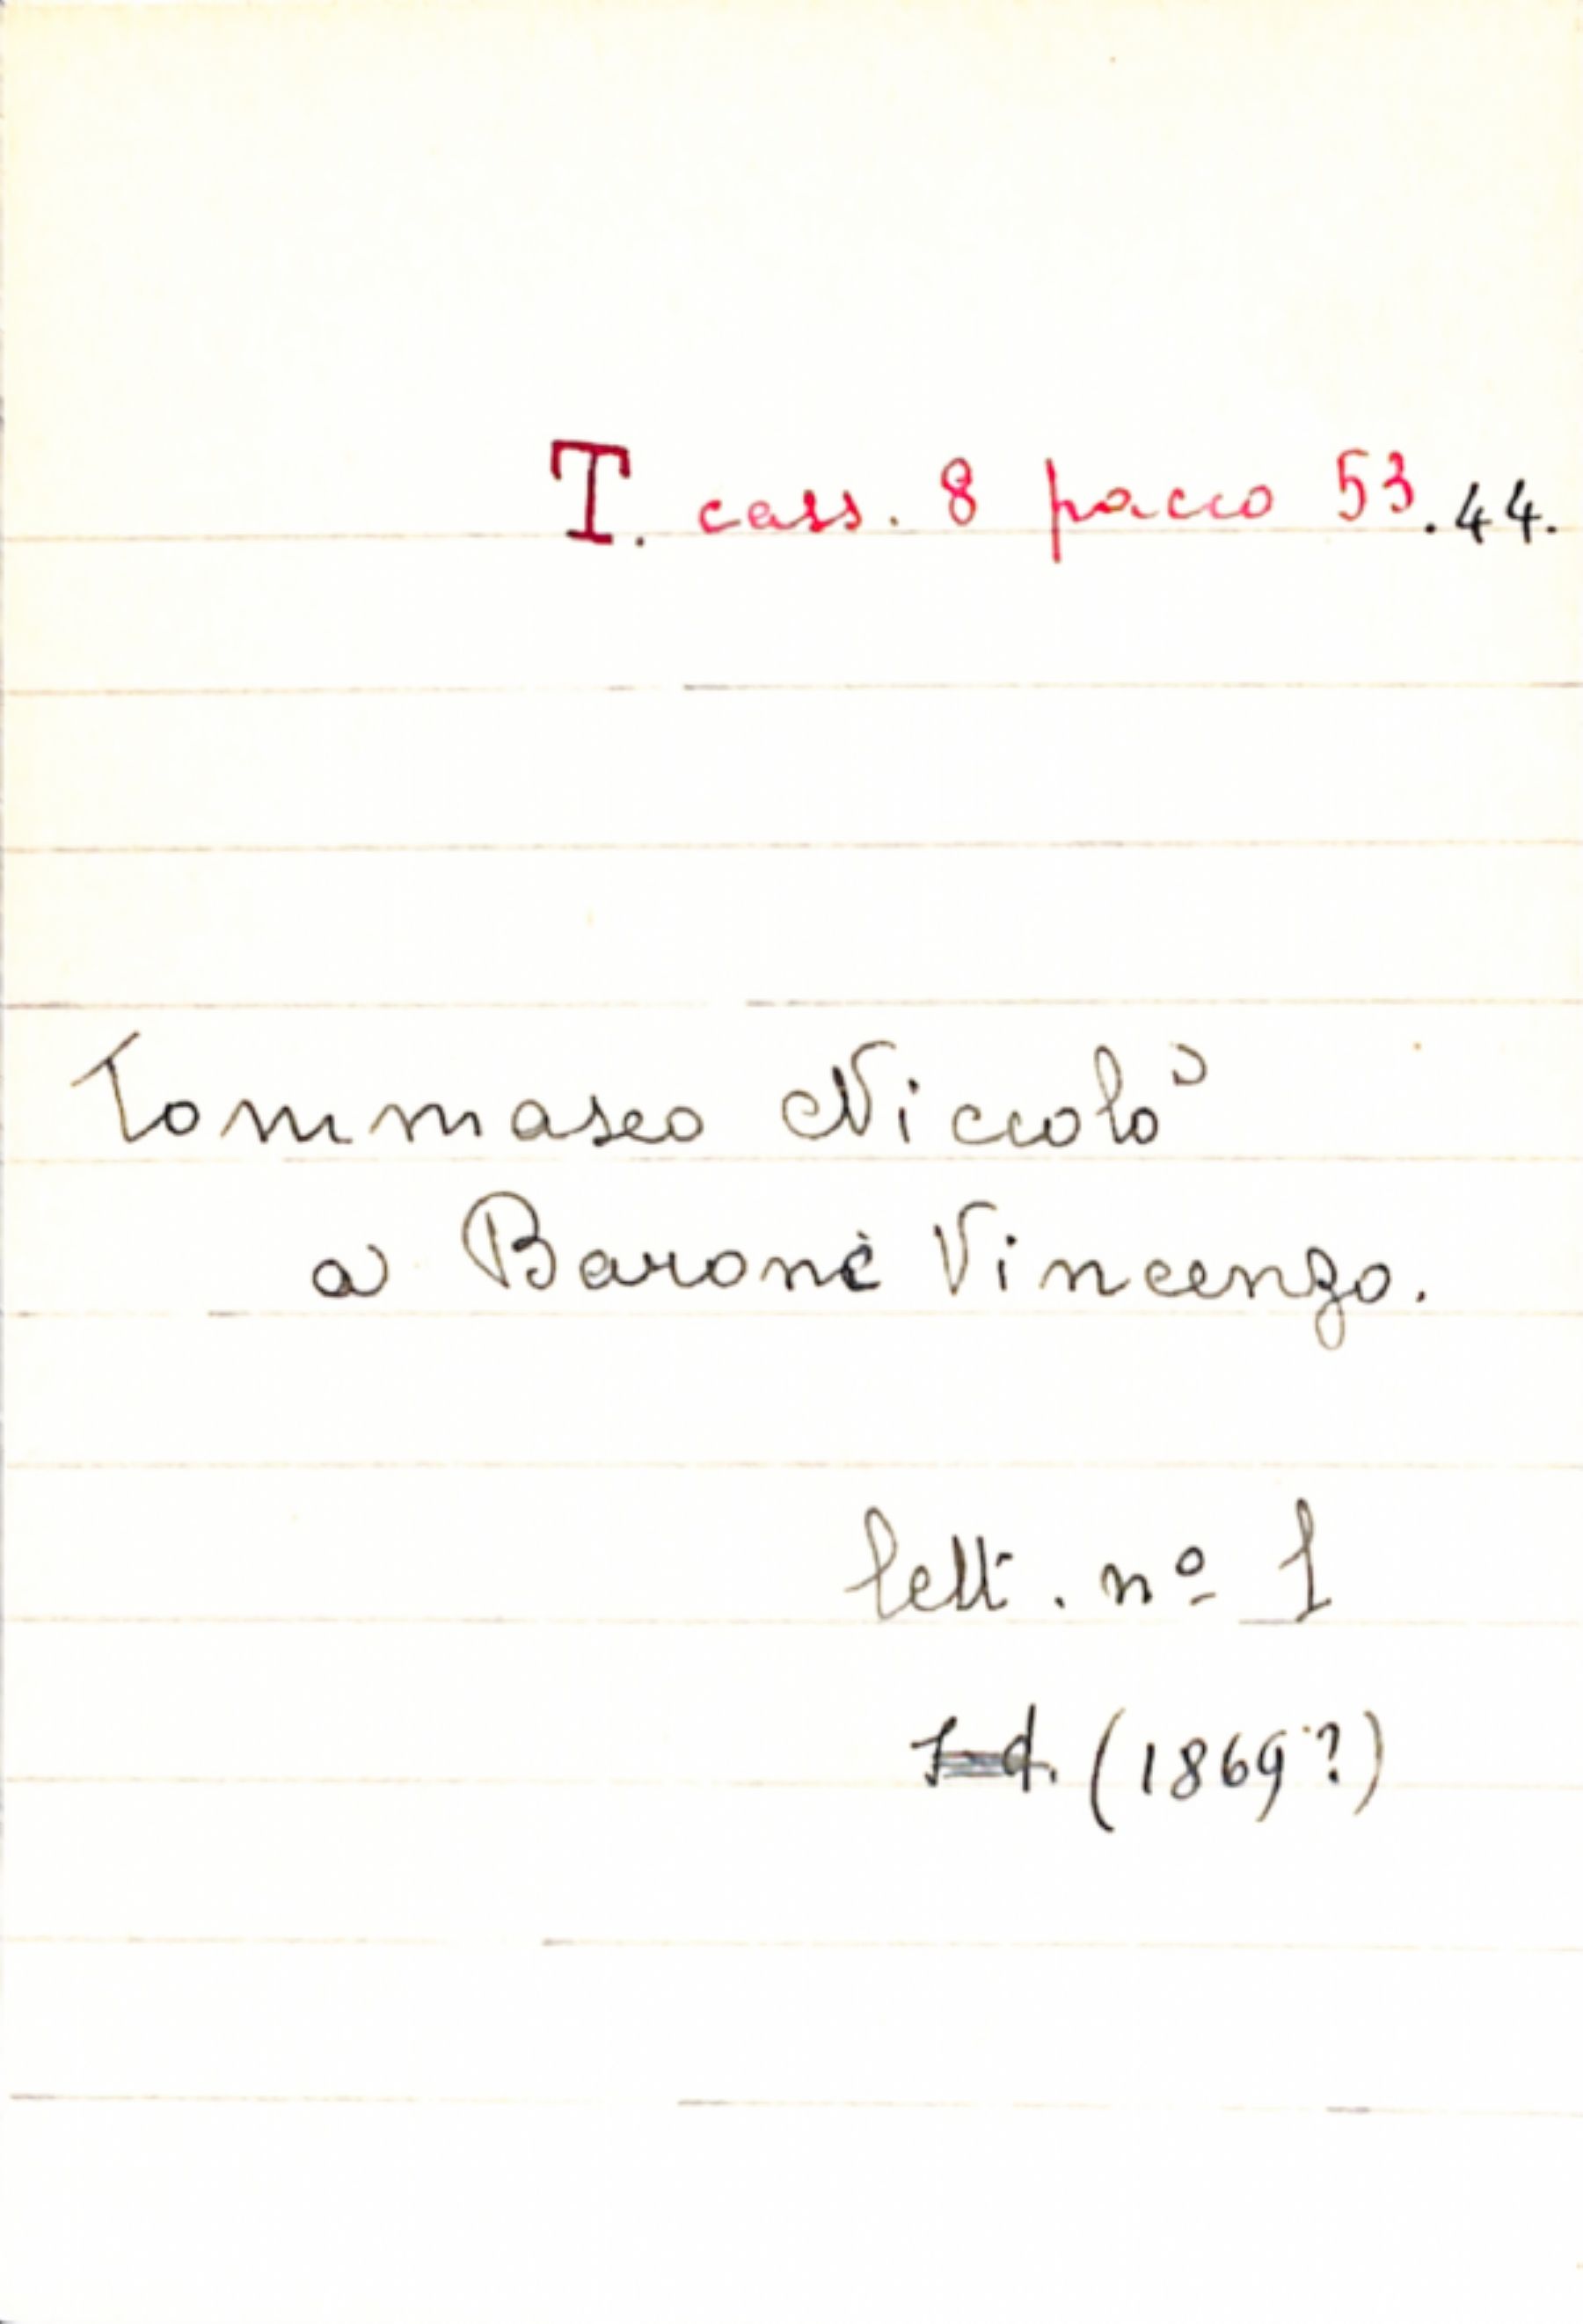 T. cass. 8 pacco 53.44.
Tommaseo Niccolò
a Barone Vincenzo.
lett. nº 1
s.d. (1869?)